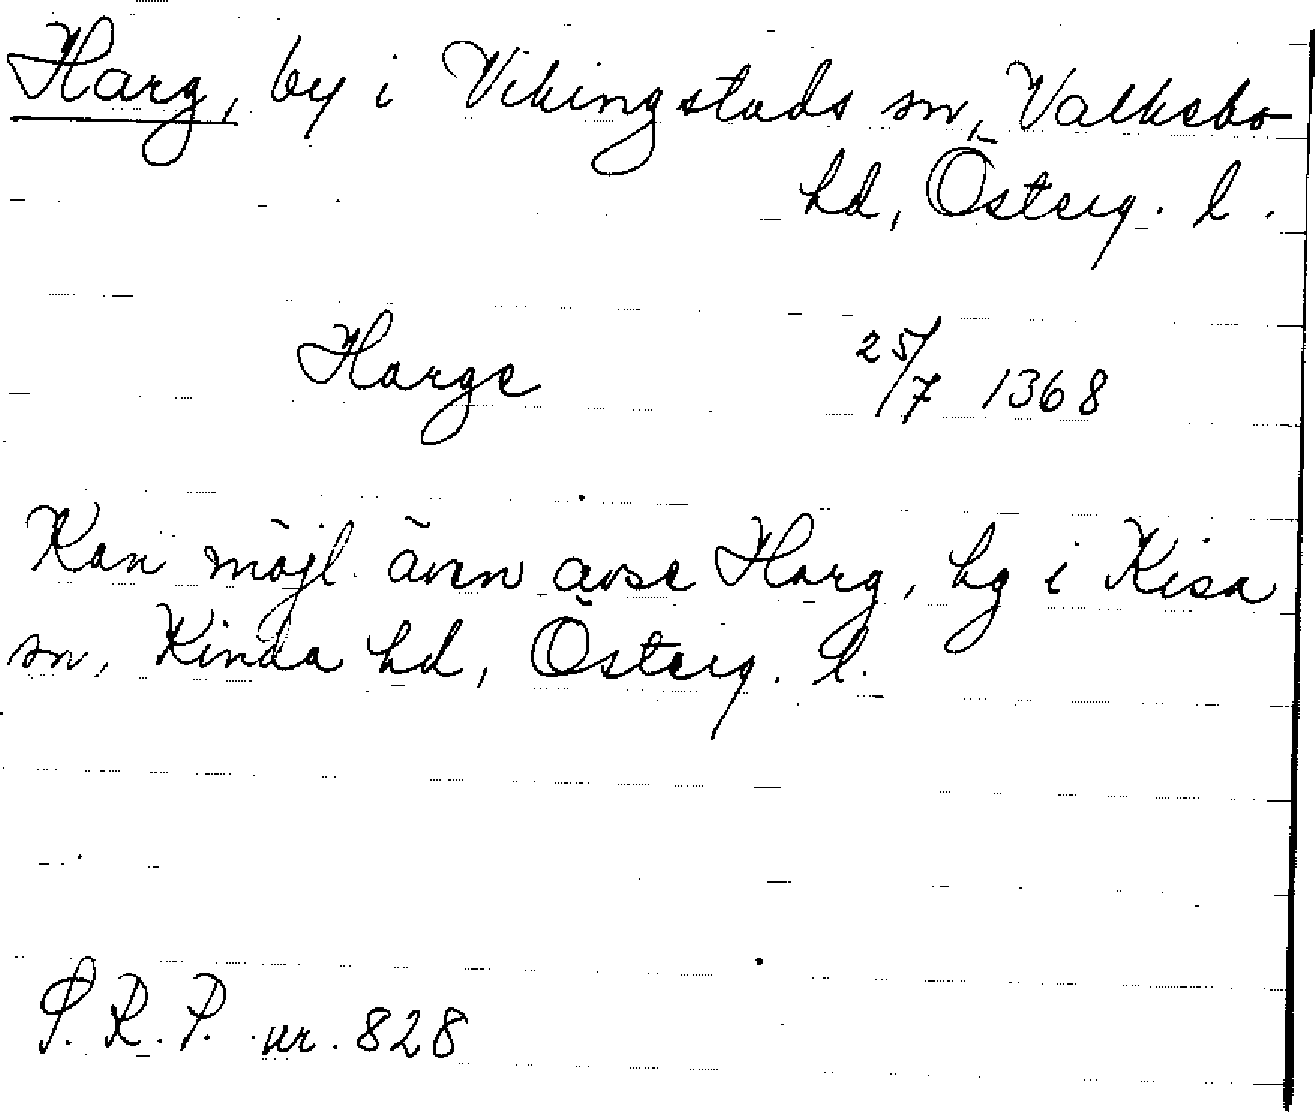 Harg, by i Vikingstads sn, Valkebo
hd, Österg. l.
Harge 25/7 1368
Kan möjl. även avse Harg, hg i Kisa
sn, Kinda hd, Österg. l.
P.R.P. nr. 828